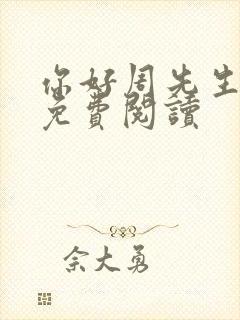 你好周先生
免費閱讀
佘大勇